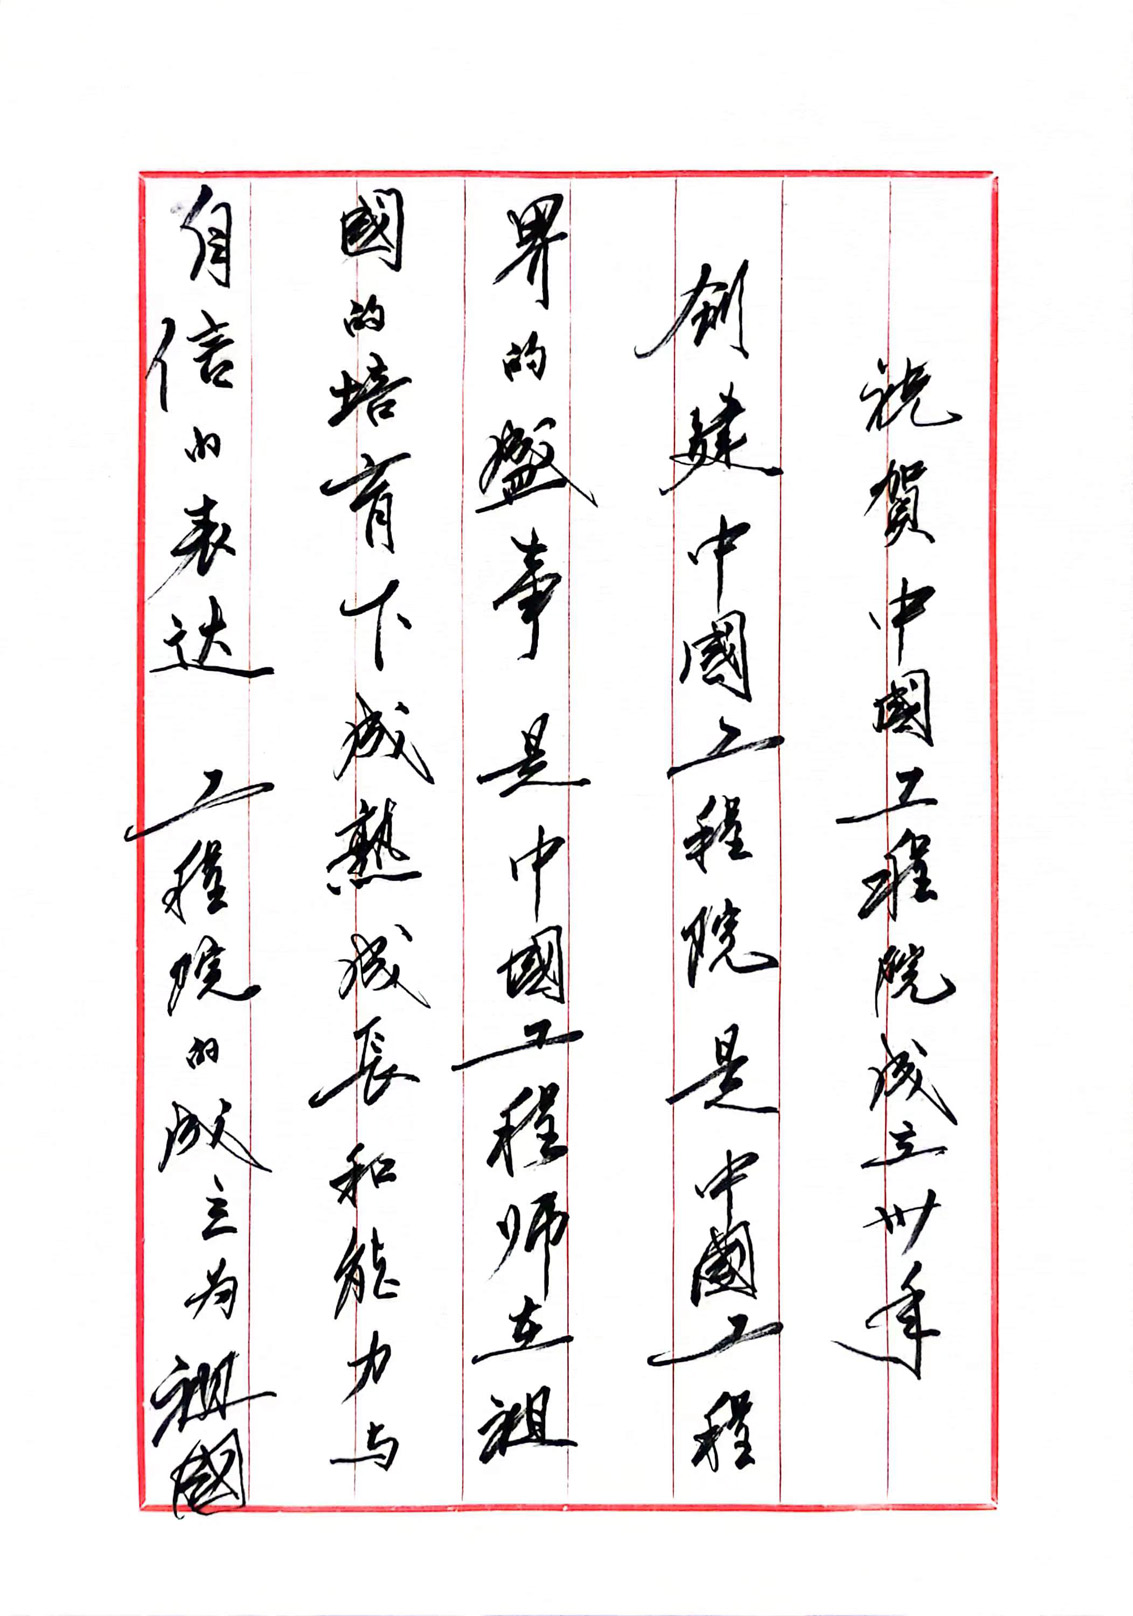 祝贺中國工程院成立卅年
创建中國工程院是中國工程
界的盛事是中國工程师在祖
國的培育下成熟成長和能力与
自信的表达工程院的成立为祖國